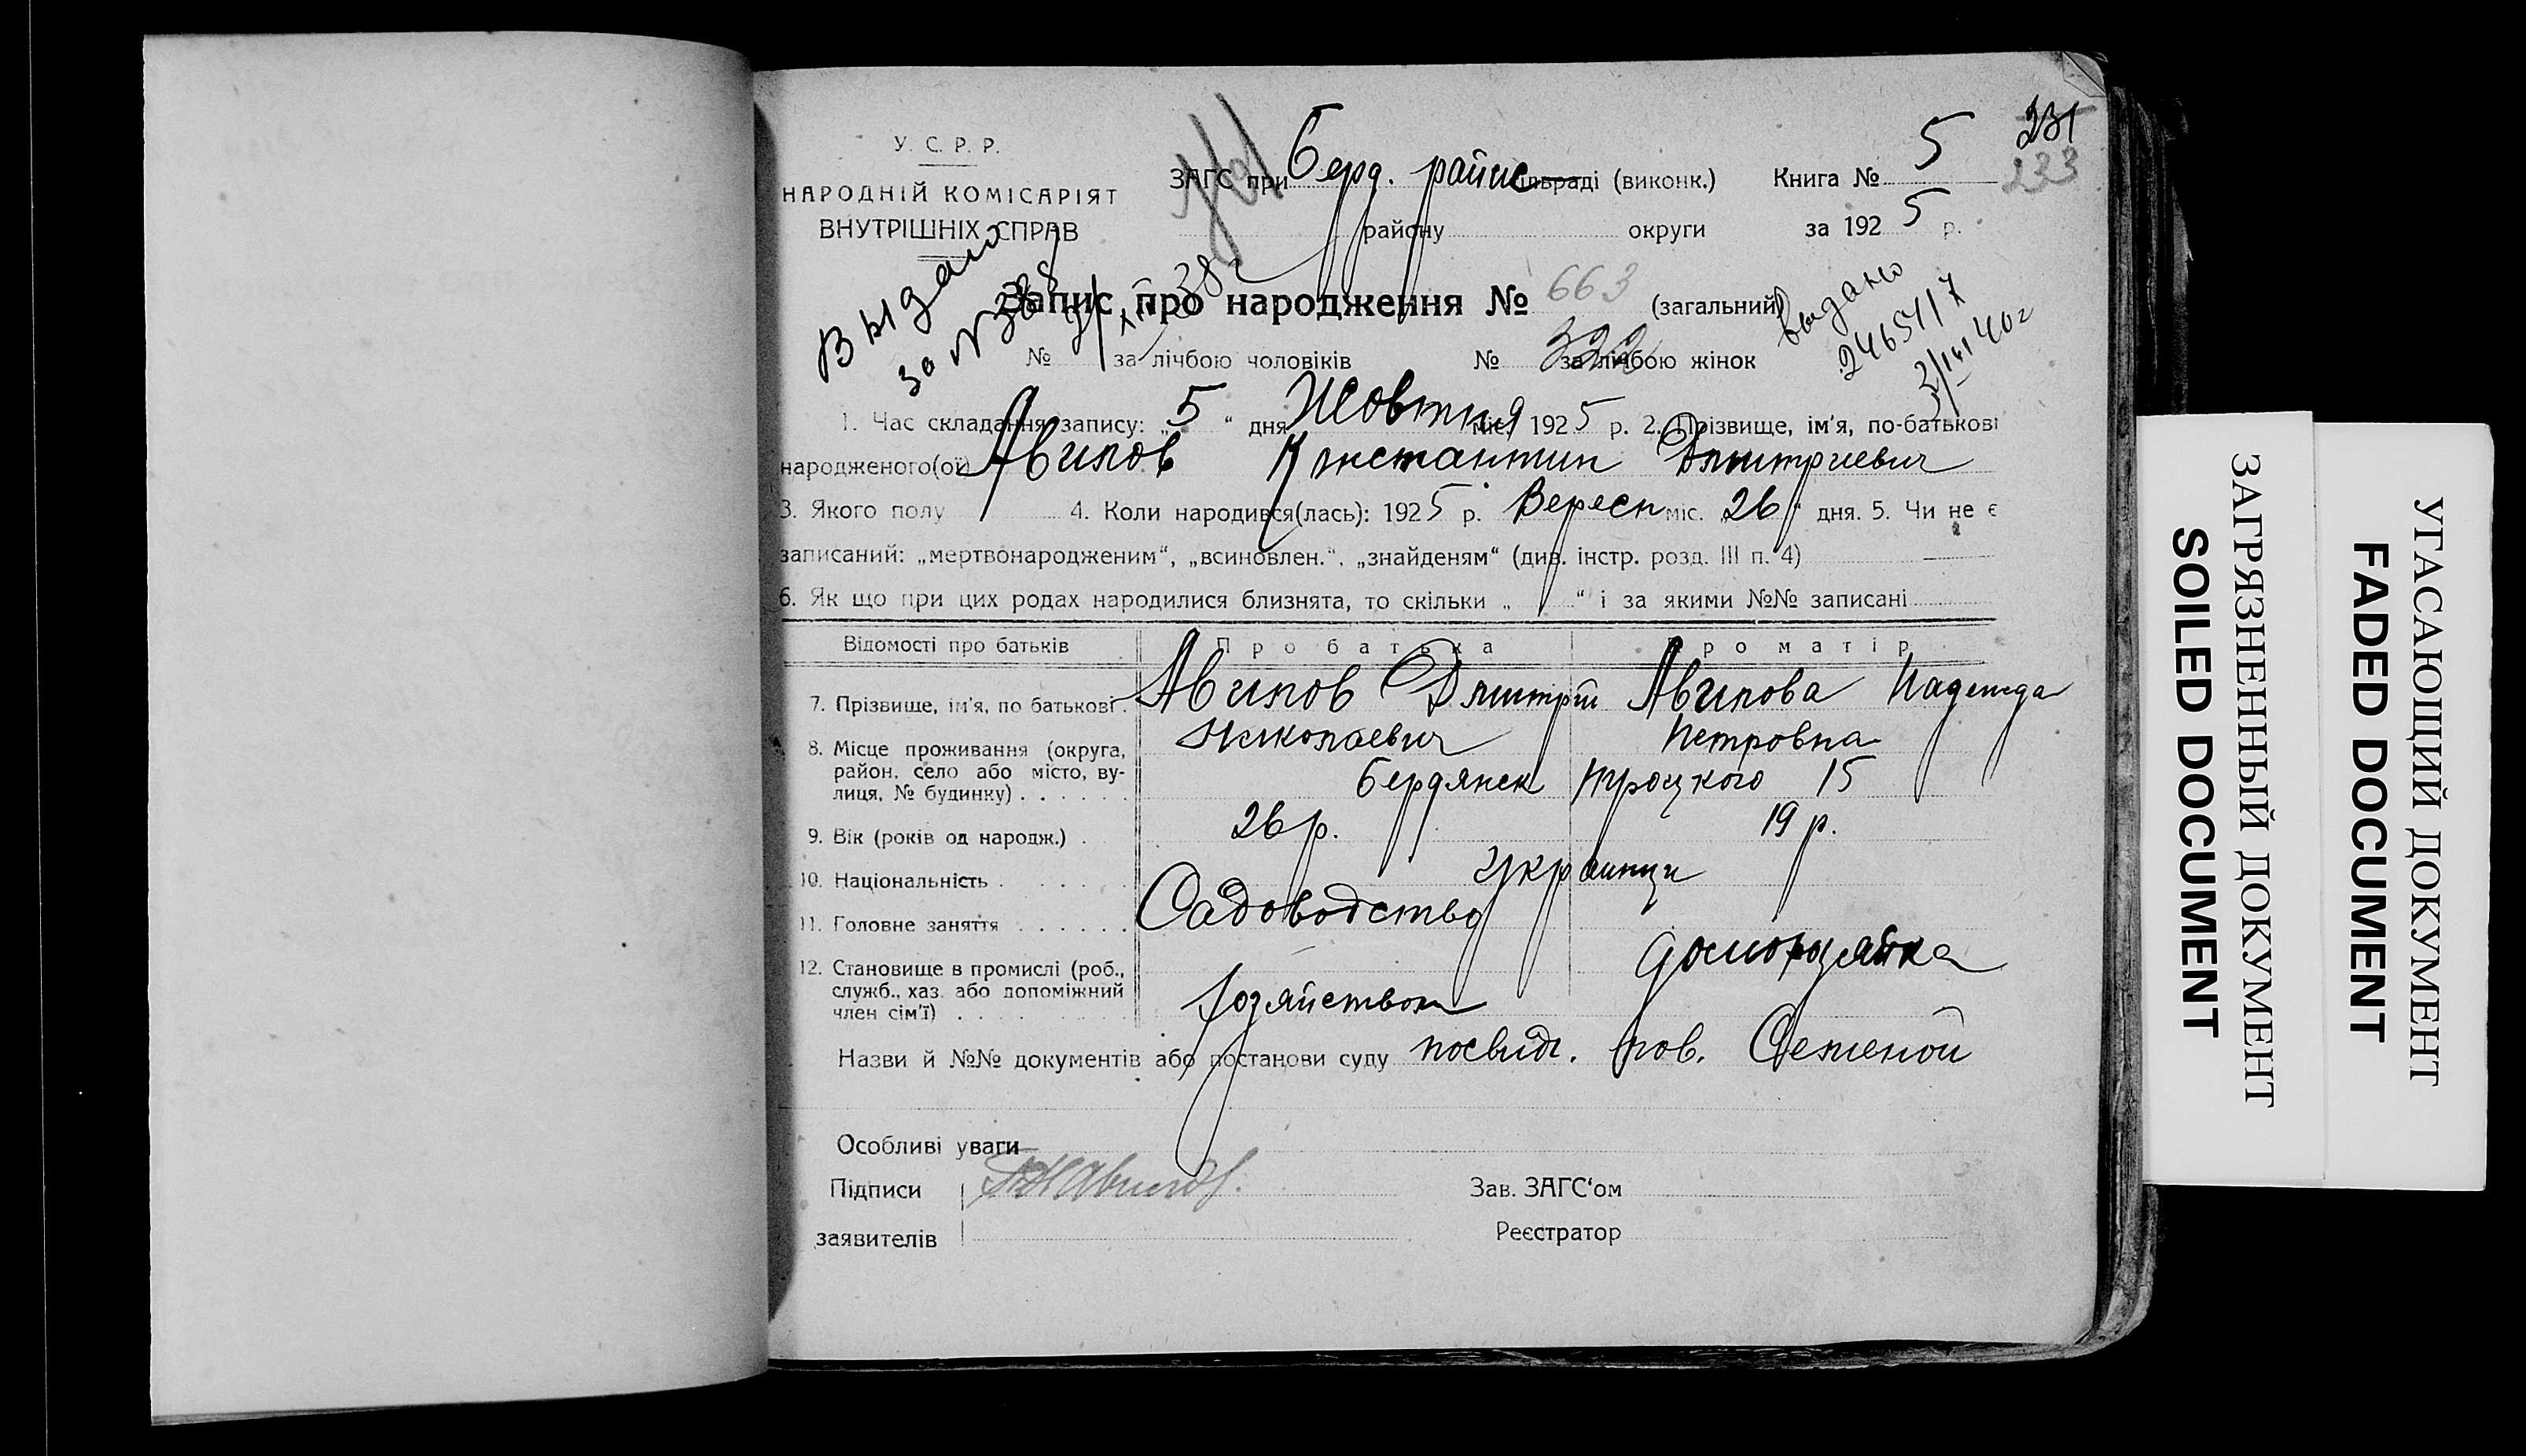 У. С. Р. Р.
НАРОДНІЙ КОМІСАРІЯТ
ВНУТРІШНІХ СПРАВ
ЗАГС при Берд. райис (виконк.) Книга № 5
231
233
району округи за 1925 р.
Выдано
за №
38 г
Запис про народження № 663 (загальний)
выдано
№ за лічбою чоловіків № 322 за лічбою жінок
1. Час складання запису: „5“ дня Жовтня міс. 1925 р. 2. Прізвище, ім'я, по-батькові
народженого(ої) Авилов Констант​ин Дмитриевич
3. Якого полу 4. Коли народився(лась): 1925 р. Вересн міс. „26“ дня. 5. Чи не є
записаний: „мертвонародженим“, „всиновлен.“, „знайденям“ (див. інстр. розд. III п. 4)
6. Як що при цих родах народилися близнята, то скільки „ “ і за якими №№ записані
Відомості про батьків Про батька Про матір
7. Прізвище, ім'я, по батькові. Авилов Дмитрій Авилова Надежда
Николаевич Петровна
8. Місце проживання (округа,
район, село або місто, ву-
лиця, № будинку) Бердянск Троцкого 15
9. Вік (років од народж.) 26 р. 19 р.
10. Національність украинци
11. Головне заняття Садоводство
домохозяйка
12. Становище в промислі (роб.,
служб., хаз. або допоміжний
член сім'ї) хозяйством
Назви й №№ документів або постанови суду посвидч. пов.
Особливі уваги
Підписи
заявителів
Зав. ЗАГС'ом
Реєстратор
ЗАГРЯЗНЕННЫЙ ДОКУМЕНТ
SOILED DOCUMENT
УГАСАЮЩИЙ ДОКУМЕНТ
FADED DOCUMENT